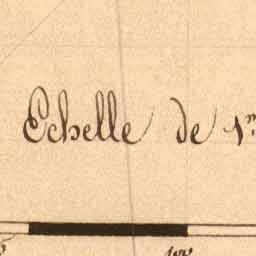 Echelle de 1m